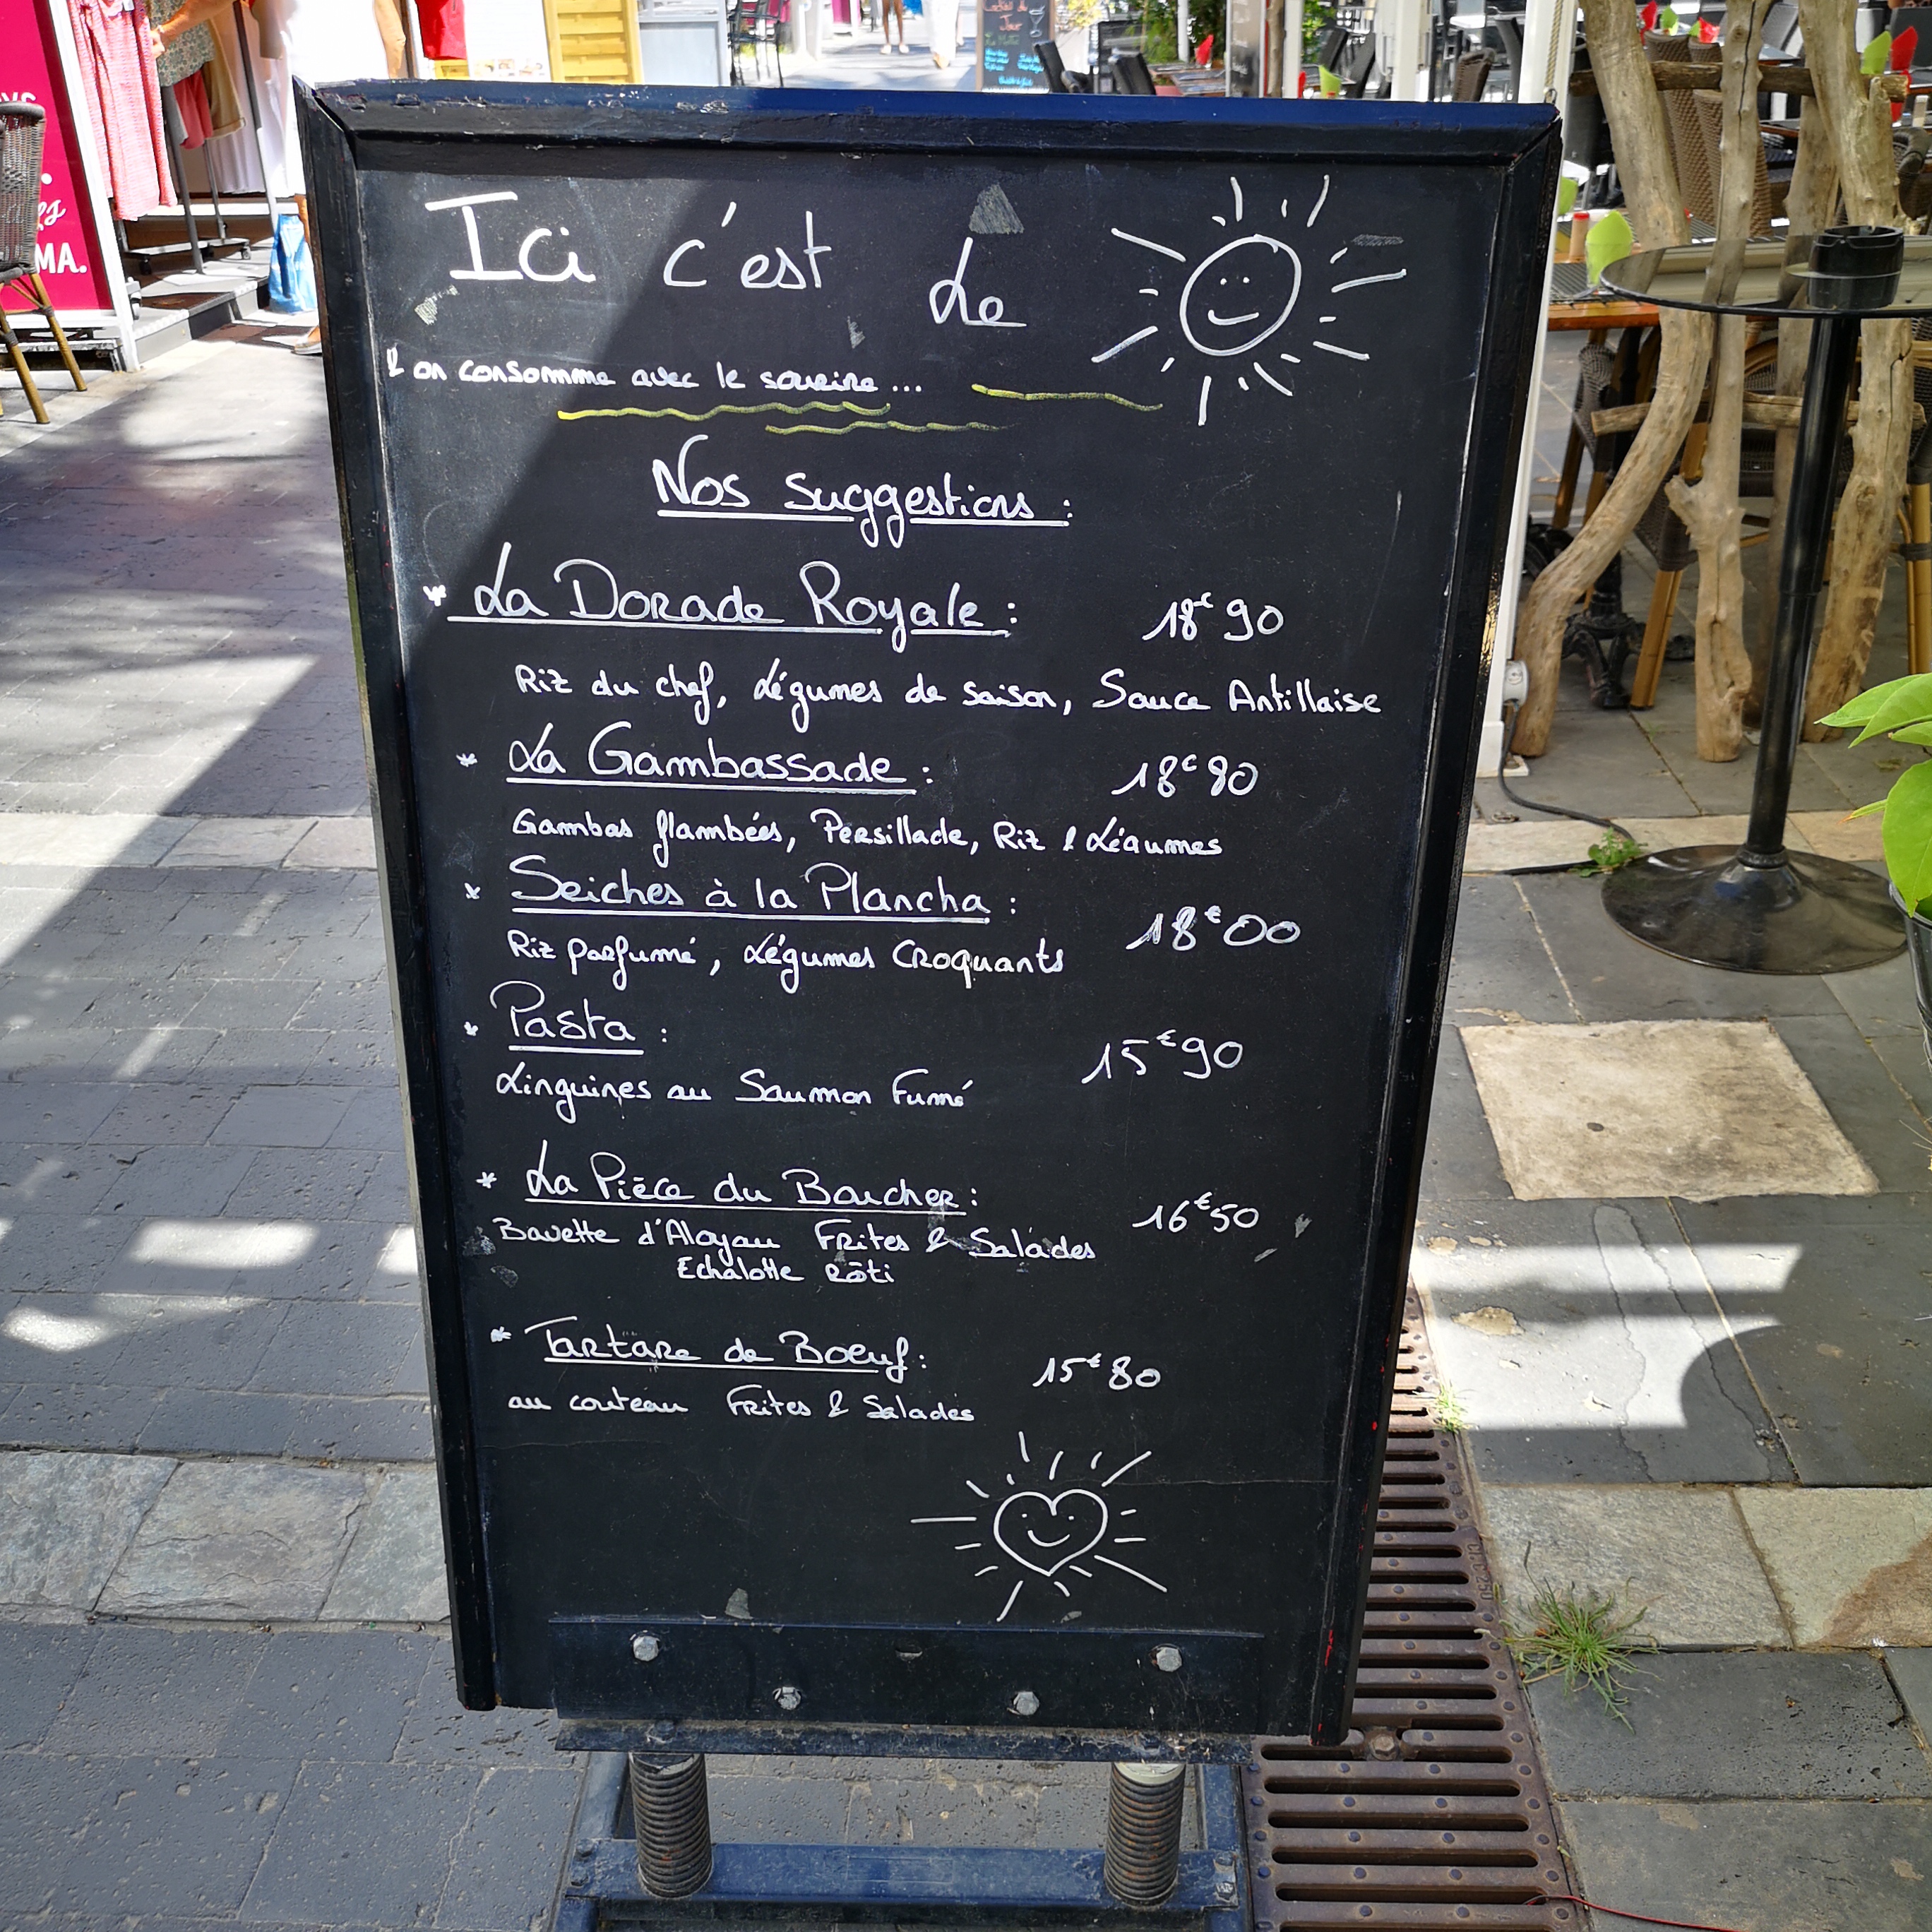 Ici c'est Le
& on consomme avec le sourire ...
Nos suggestions :
* La Dorade Royale : 18€90
Riz du chef, Légumes de saison, Sauce Antillaise
* La Gambassade : 18€80
Gambas flambées, Persillade, Riz & Légumes
* Seiches à la Plancha : 18€00
Riz parfumé, Légumes Croquants
* Pasta : 15€90
Linguines au Saumon Fumé
* La Pièce du Boucher : 16€50
Bavette d'Aloyau Frites & Salades
Echalotte Rôti
* Tartare de Boeuf : 15€80
au couteau Frites & Salades
MA.